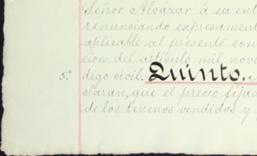 Señor Alcázar á su ent
renunciando expresament
aplicable al presente con
ción del artículo mil nove
5º digo civil. Quinto.
claran, que el precio fijad
de los terrenos vendidos y